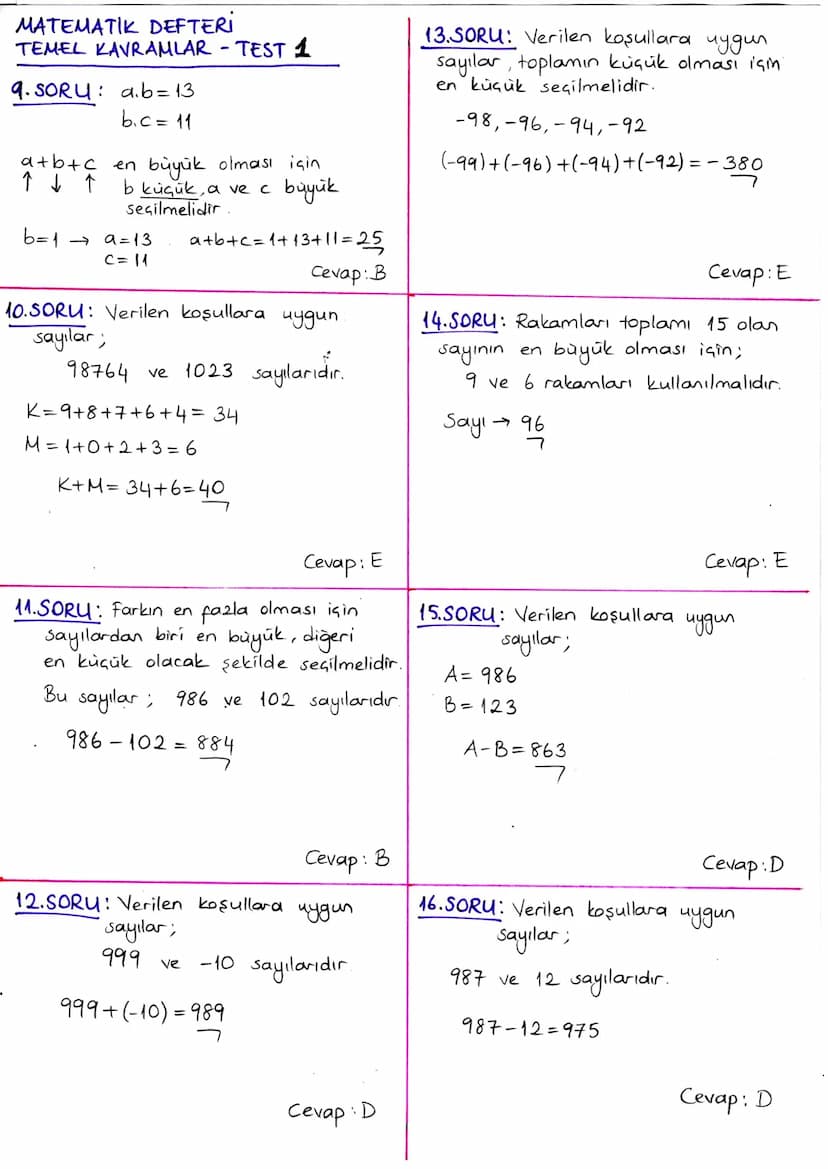 MATEMATİK DEFTERİ
TEMEL KAVRAMLAR - TEST 1
9.SORU: a.b=13
b.c=11
a+b+c en büyük olması için
↑ ↓ ↑ b küçük, a ve c büyük
seçilmelidir.
b=1 → a=13 a+b+c=1+13+11=25
c=11
Cevap: B
10.SORU: Verilen koşullara uygun
sayılar;
98764 ve 1023 sayılarıdır.
K=9+8+7+6+4=34
M=1+0+2+3=6
K+M=34+6=40
Cevap: E
11.SORU: Farkın en fazla olması için
sayılardan biri en büyük, diğeri
en küçük olacak şekilde seçilmelidir.
Bu sayılar; 986 ve 102 sayılarıdır
986-102=884
Cevap: B
12.SORU: Verilen koşullara uygun
sayılar;
999 ve -10 sayılarıdır
999+(-10)=989
Cevap: D
13.SORU: Verilen koşullara uygun
sayılar, toplamın küçük olması için
en küçük seçilmelidir.
-98, -96, -94, -92
(-99)+(-96)+(-94)+(-92)=-380
Cevap: E
14.SORU: Rakamları toplamı 15 olan
sayının en büyük olması için;
9 ve 6 rakamları kullanılmalıdır.
Sayı → 96
Cevap: E
15.SORU: Verilen koşullara uygun
sayılar;
A=986
B=123
A-B=863
Cevap: D
16.SORU: Verilen koşullara uygun
sayılar;
987 ve 12 sayılarıdır.
987-12=975
Cevap: D